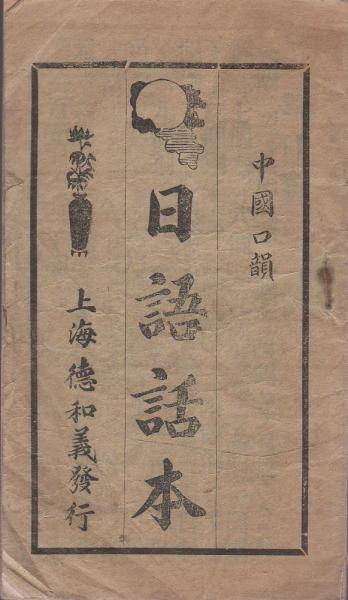 中國口韻
日語話本
上海德和義發行